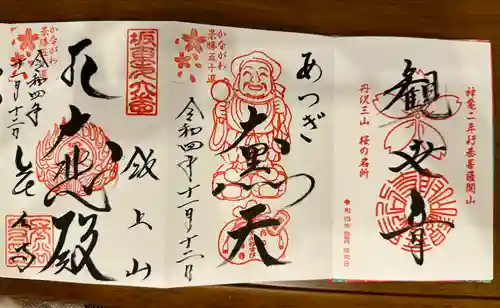 神亀二年行基菩薩開山
観世音
丹沢三山 桜の名所
あつぎ
大黒天
令和四年十一月十二日
かながわ
景勝五十選
坂東第六番
飯上山
大悲殿
かながわ
景勝五十選
令和四年
十一月十二日
長谷寺